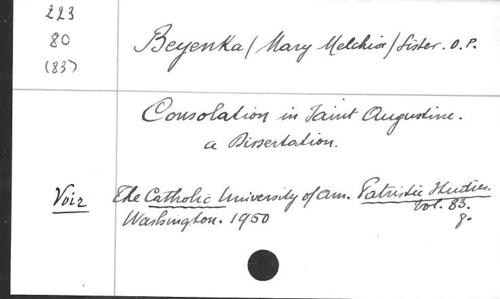 223
80
(83)
Beyenka / Mary Melchior / Sister. O.P.
Consolation in Saint Augustine.
a Dissertation.
Voir The Catholic University of Am. Patristic Studies.
Vol. 83.
Washington. 1950
8.